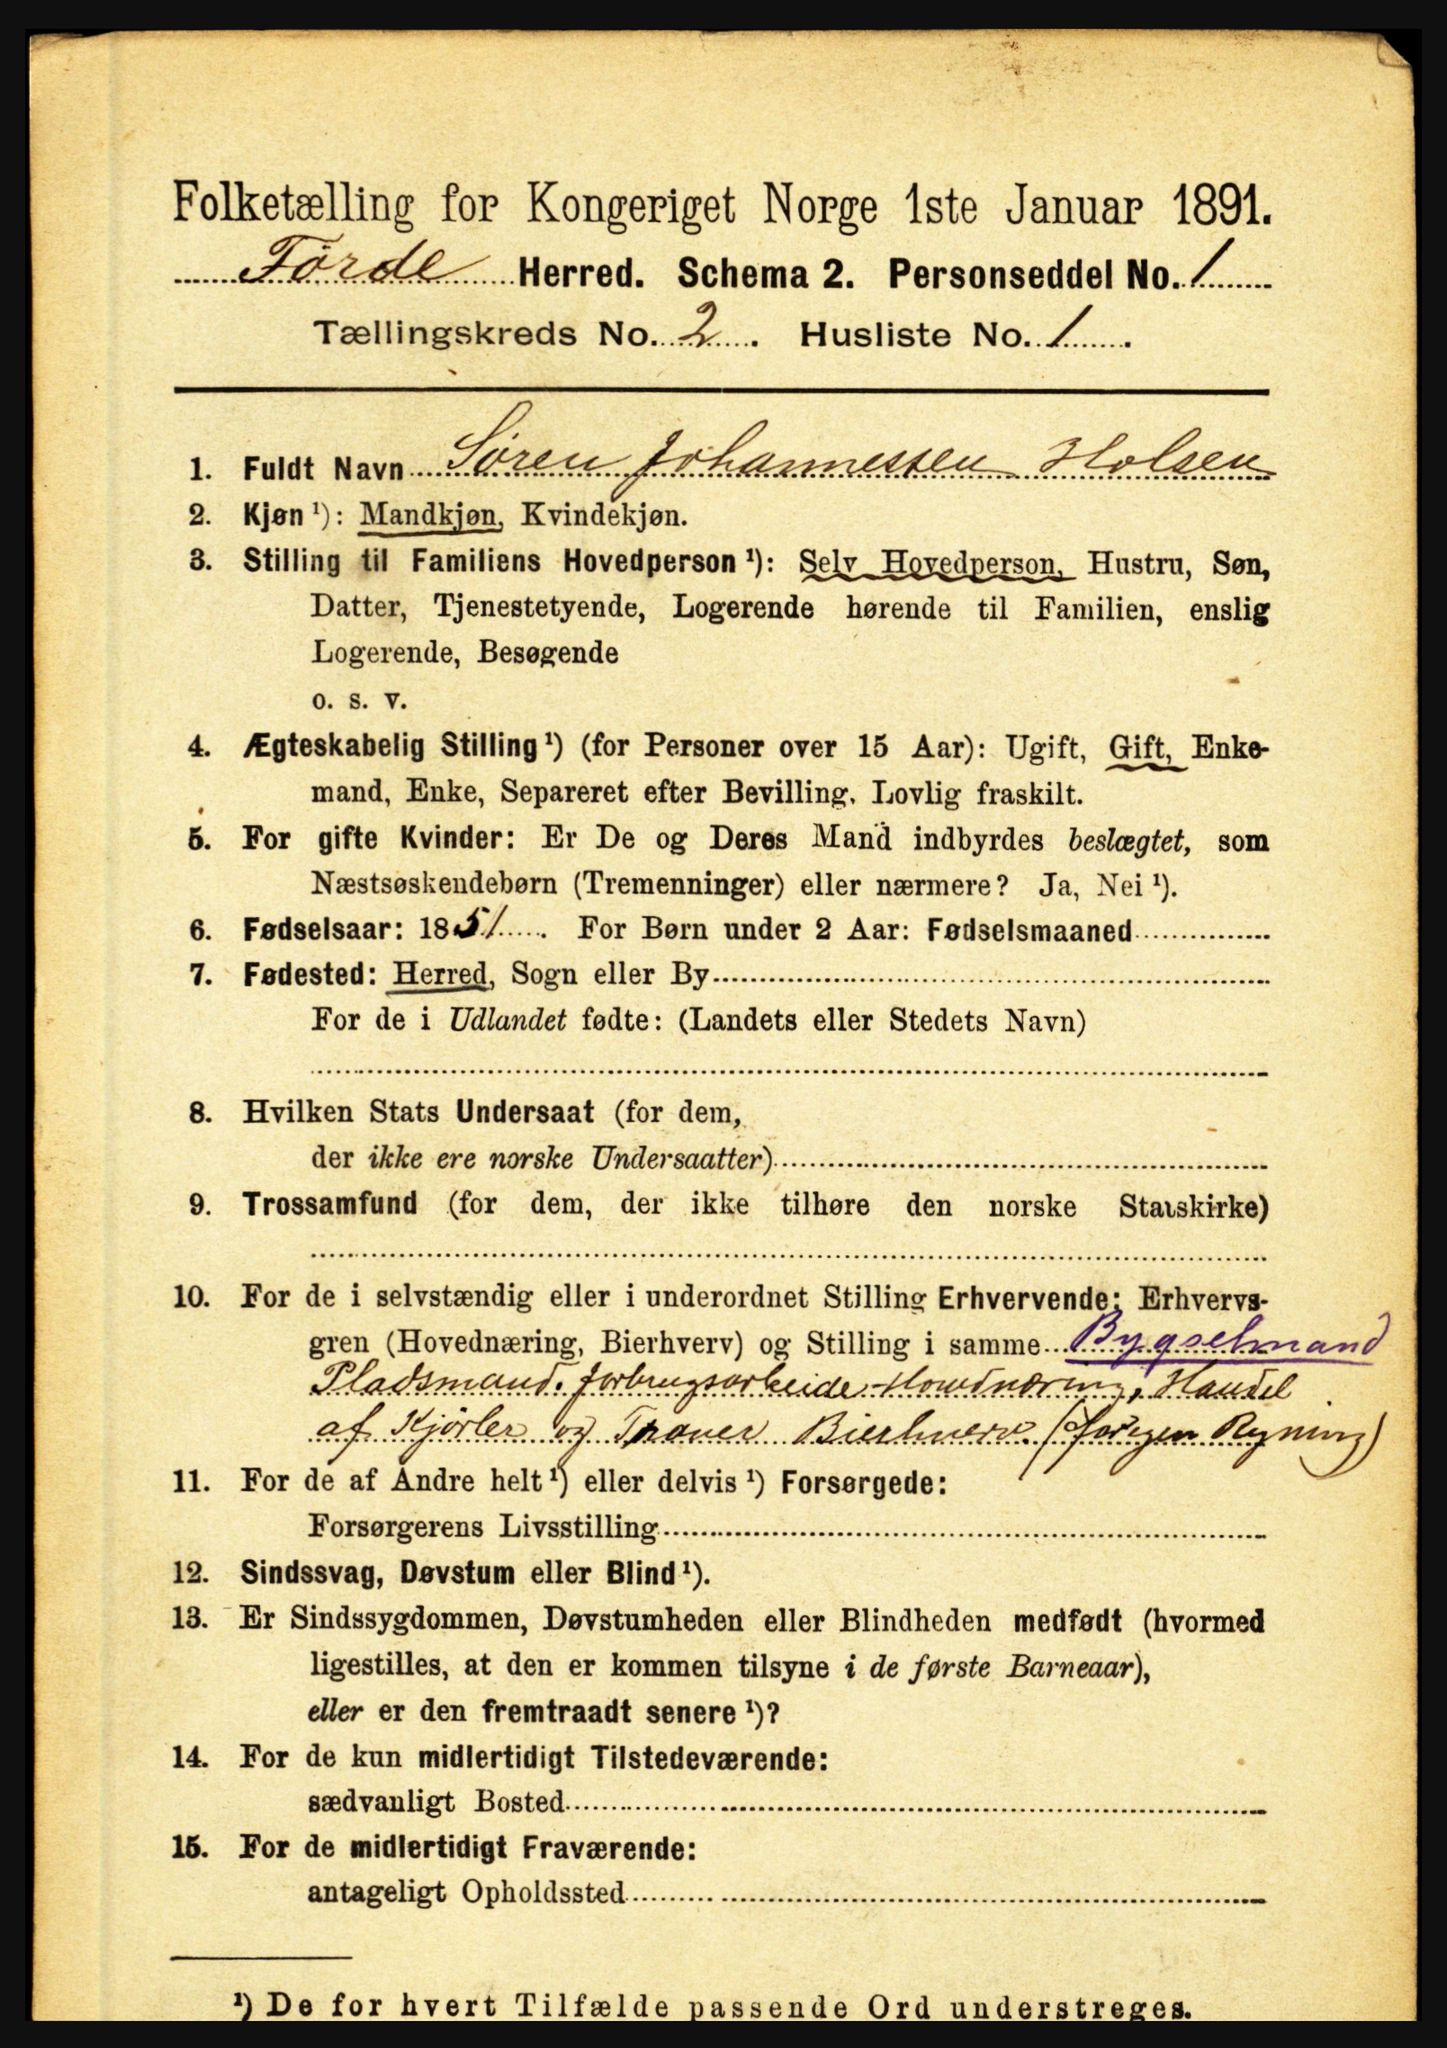 Folketælling for Kongeriget Norge 1ste Januar 1891.
Førde Herred. Schema 2. Personseddel No. 1
Tællingskreds No. 2. Husliste No. 1.
1. Fuldt Navn Søren Johannessen Holsen
2. Kjøn ¹): Mandkjøn, Kvindekjøn.
3. Stilling til Familiens Hovedperson ¹): Selv Hovedperson, Hustru, Søn,
Datter, Tjenestetyende, Logerende hørende til Familien, enslig
Logerende, Besøgende
o. s. v.
4. Ægteskabelig Stilling ¹) (for Personer over 15 Aar): Ugift, Gift, Enke-
mand, Enke, Separeret efter Bevilling, Lovlig fraskilt.
5. For gifte Kvinder: Er De og Deres Mand indbyrdes beslægtet, som
Næstsøskendebørn (Tremenninger) eller nærmere? Ja, Nei ¹).
6. Fødselsaar: 1851. For Børn under 2 Aar: Fødselsmaaned
7. Fødested: Herred, Sogn eller By
For de i Udlandet fødte: (Landets eller Stedets Navn)
8. Hvilken Stats Undersaat (for dem,
der ikke ere norske Undersaatter)
9. Trossamfund (for dem, der ikke tilhøre den norske Statskirke)
10. For de i selvstændig eller i underordnet Stilling Erhvervende: Erhvervs-
gren (Hovednæring, Bierhverv) og Stilling i samme Bygselmand
Pladsmand. Jorbrugsarbeide Hovdnæring, Handel
af Kjørler og Traver Bierhverv. (
11. For de af Andre helt ¹) eller delvis ¹) Forsørgede:
Forsørgerens Livsstilling
12. Sindssvag, Døvstum eller Blind ¹).
13. Er Sindssygdommen, Døvstumheden eller Blindheden medfødt (hvormed
ligestilles, at den er kommen tilsyne i de første Barneaar),
eller er den fremtraadt senere ¹)?
14. For de kun midlertidigt Tilstedeværende:
sædvanligt Bosted
15. For de midlertidigt Fraværende:
antageligt Opholdssted
¹) De for hvert Tilfælde passende Ord understreges.